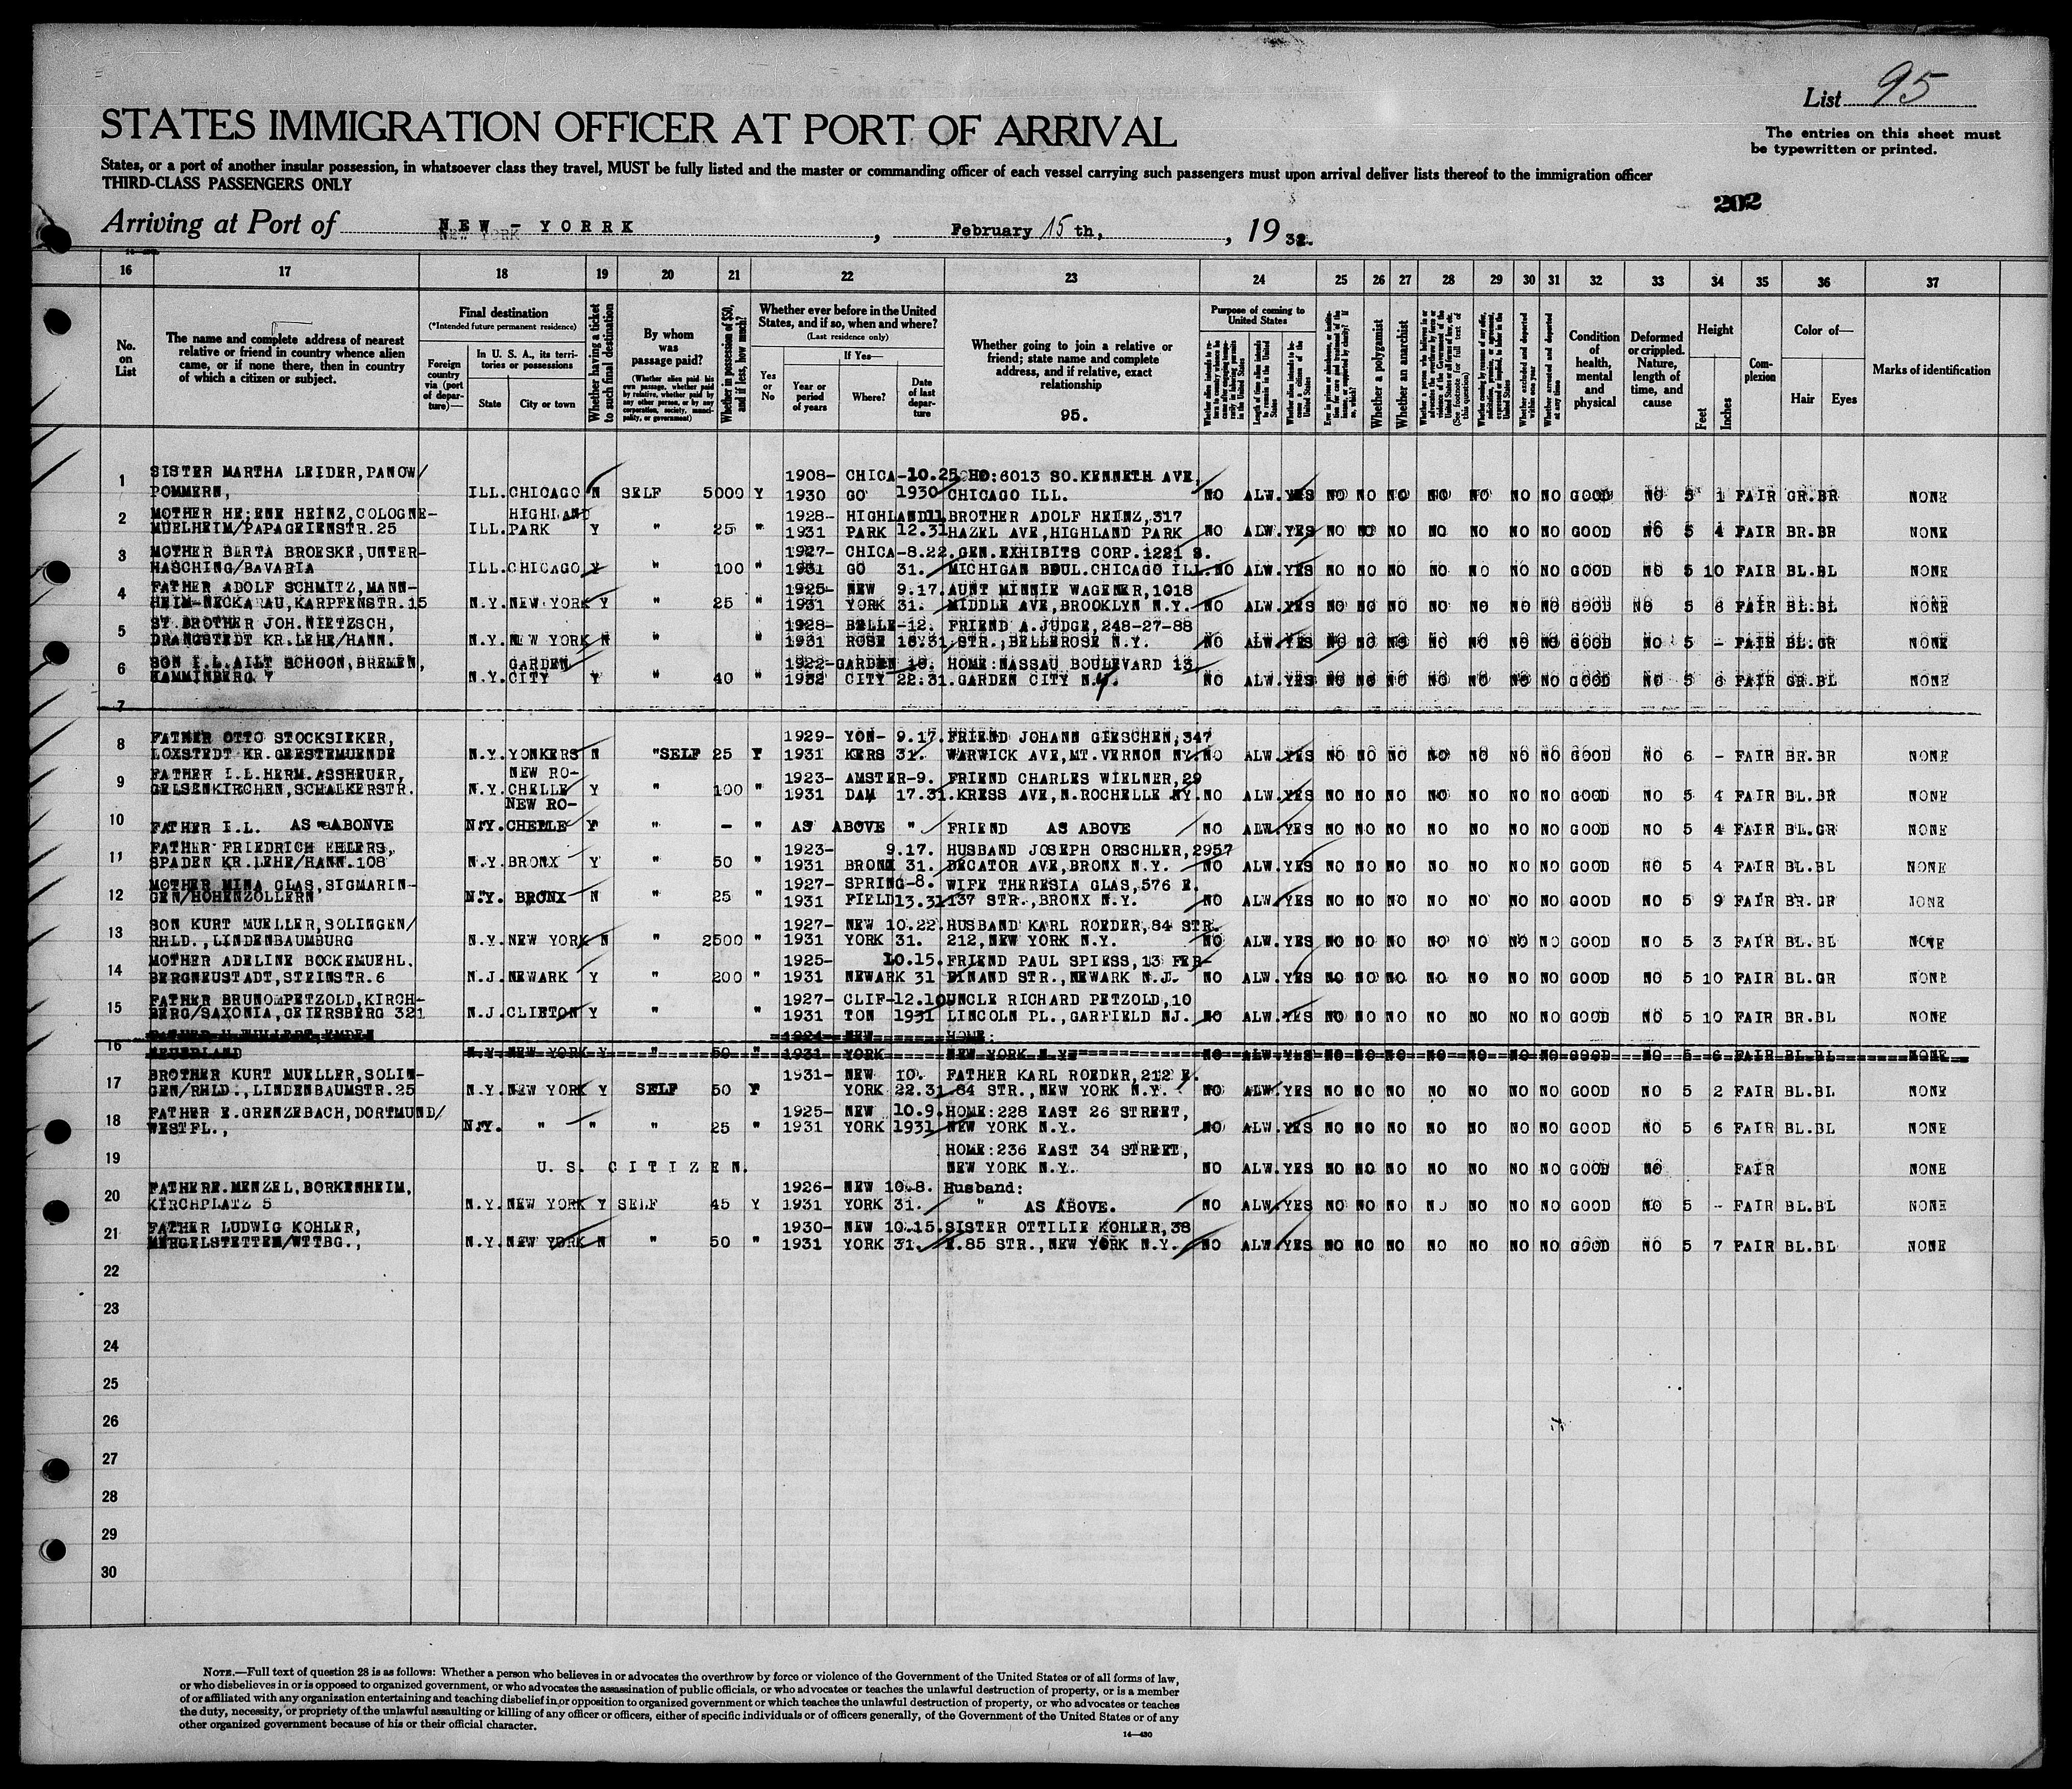 List 95
STATES IMMIGRATION OFFICER AT PORT OF ARRIVAL
The entries on this sheet must
be typewritten or printed.
States, or a port of another insular possession, in whatsoever class they travel, MUST be fully listed and the master or commanding officer of each vessel carrying such passengers must upon arrival deliver lists thereof to the immigration officer
THIRD-CLASS PASSENGERS ONLY
202
Arriving at Port of NEW - YORRK, February 15 th, , 19 32.
NEW YORK
16 17 18 19 20 21 22 23 24 25 26 27 28 29 30 31 32 33 34 35 36 37
No. on List
The name and complete address of nearest
relative or friend in country whence alien
came, or if none there, then in country
of which a citizen or subject.
Final destination
(*Intended future permanent residence)
Foreign country via (port of departure)—
In U. S. A., its territories or possessions
State
City or town
Whether having a ticket to such final destination
By whom was passage paid?
(Whether alien paid his own passage, whether paid by relative, whether paid by any other person, or by any corporation, society, municipality, or government)
Whether in possession of $50, and if less, how much?
Whether ever before in the United
States, and if so, when and where?
(Last residence only)
Yes or No
If Yes—
Year or period of years
Where?
Date of last departure
Whether going to join a relative or
friend; state name and complete
address, and if relative, exact
relationship
95.
Purpose of coming to United States
Length of time alien intends to remain in the United States
Whether a polygamist
Whether an anarchist
Whether excluded and deported within one year
Whether arrested and deported at any time
Condition of health, mental and physical
Deformed or crippled. Nature, length of time, and cause
Height
Feet
Inches
Complexion
Color of—
Hair
Eyes
Marks of identification
SISTER MARTHA LEIDER,PANOW/ 1908- CHICA-10.25 HO:6013 SO.KENNETH AVE,
1 POMMERN, ILL. CHICAGO N SELF 5000 Y 1930 GO 1930 CHICAGO ILL. NO ALW. YES NO NO NO NO NO NO NO GOOD NO 5 1 FAIR GR.BR NONE
MOTHER HE;ENE HEINZ,COLOGNE- HIGHLAND 1928- HIGHLAND11. BROTHER ADOLF HEINZ,317
2 MUELHEIM/PAPAGEIENSTR.25 ILL. PARK Y " 25 " 1931 PARK 12.31 HAZEL AVE,HIGHLAND PARK NO ALW. YES NO NO NO NO NO NO NO GOOD NO 5 4 FAIR BR.BR NONE
MOTHER BERTA BROESKE,UNTER- 1927- CHICA-8.22. GEN.EXHIBITS CORP.1221 S.
3 HASCHING/BAVARIA ILL. CHICAGO Y " 100 " 1931 GO 31. MICHIGAN BOUL.CHICAGO ILL. NO ALW. YES NO NO NO NO NO NO NO GOOD NO 5 10 FAIR BL.BL NONE
FATHER ADOLF SCHMITZ,MANN- 1925- NEW 9.17. AUNT MINNIE WAGENER,1018
4 HEIM-NECKARAU,KARPFENSTR.15 N.Y. NEW YORK Y " 25 " 1931 YORK 31. MIDDLE AVE,BROOKLYN N.Y. NO ALW. YES NO NO NO NO NO NO NO GOOD NO 5 6 FAIR BL.BL NONE
ST.BROTHER JOH.NIETZSCH, 1928- BELLE-12. FRIEND A.JUDGE,248-27-88
5 DRANGSTEDT KR.LEHE/HANN. N.Y. NEW YORK N " " 1931 ROSE 18.31. STR.,BELLEROSE N.Y. NO ALW. YES NO NO NO NO NO NO NO GOOD NO 5 - FAIR BL.GR NONE
SON I.L.AILT SCHOON,BREMEN, GARDEN 1922- GARDEN 10. HOME:NASSAU BOULEVARD 13
6 HAMMINBERG 7 N.Y. CITY Y " 40 " 1932 CITY 22.31. GARDEN CITY N.Y. NO ALW. YES NO NO NO NO NO NO NO GOOD NO 5 6 FAIR GR.BL NONE
7
FATHER OTTO STOCKSIEKER, 1929- YON- 9.17. FRIEND JOHANN GIESCHEN,347
8 LOXSTEDT KR.GEESTEMUENDE N.Y. YONKERS N "SELF 25 Y 1931 KERS 31. WARWICK AVE,MT.VERNON NY. NO ALW. YES NO NO NO NO NO NO NO GOOD NO 6 - FAIR BR.BR NONE
FATHER I.L.HERM.ASSHEUER, NEW RO- 1923- AMSTER-9. FRIEND CHARLES WIELNER,29
9 GELSENKIRCHEN,SCHALKERSTR. N.Y. CHELLE Y " 100 " 1931 DAM 17.31. KRESS AVE,N.ROCHELLE NY. NO ALW. YES NO NO NO NO NO NO NO GOOD NO 5 4 FAIR BL.BR NONE
NEW RO-
10 FATHER I.L. AS ABONVE N.Y. CHELLE Y " - " AS ABOVE " FRIEND AS ABOVE NO ALW. YES NO NO NO NO NO NO NO GOOD NO 5 4 FAIR BL.GR NONE
FATHER FRIEDRICH EHLERS, 1923- 9.17. HUSBAND JOSEPH ORSCHLER,2957
11 SPADEN KR.LEHE/HANN.108 N.Y. BRONX Y " 50 " 1931 BRONX 31. DECATOR AVE,BRONX N.Y. NO ALW. YES NO NO NO NO NO NO NO GOOD NO 5 4 FAIR BL.BL NONE
MOTHER MINA GLAS,SIGMARIN- 1927- SPRING-8. WIFE THERESIA GLAS,576 E.
12 GEN/HOHENZOLLERN N.Y. BRONX N " 25 " 1931 FIELD 13.31 137 STR.,BRONX N.Y. NO ALW. YES NO NO NO NO NO NO NO GOOD NO 5 9 FAIR BR.GR NONE
SON KURT MUELLER,SOLINGEN/ 1927- NEW 10.22. HUSBAND KARL ROEDER,84 STR.
13 RHLD.,LINDENBAUMBURG N.Y. NEW YORK N " 2500 " 1931 YORK 31. 212,NEW YORK N.Y. NO ALW. YES NO NO NO NO NO NO NO GOOD NO 5 3 FAIR BL.BL NONE
MOTHER ADELINE BOCKEMUEHL. 1925- 10.15. FRIEND PAUL SPIESS,13 FER-
14 BERGNEUSTADT,STEINSTR.6 N.J. NEWARK Y " 200 " 1931 NEWARK 31 DINAND STR.,NEWARK N.J. NO ALW. YES NO NO NO NO NO NO NO GOOD NO 5 10 FAIR BL.GR NONE
FATHER BRUNO PETZOLD,KIRCH- 1927- CLIF-12.10 UNCLE RICHARD PETZOLD,10
15 BERG/SAXONIA,GEIERSBERG 321 N.J. CLIFTON Y " " 1931 TON 1931 LINCOLN PL.,GARFIELD NJ. NO ALW. YES NO NO NO NO NO NO NO GOOD NO 5 10 FAIR BR.BL NONE
FATHER H.WILLERT,EMDEN 1924- NEW HOME:
16 NEUERLAND N.Y. NEW YORK Y " 50 " 1931 YORK NEW YORK N.Y. NO ALW YES NO NO NO NO NO NO NO GOOD NO 5 6 FAIR BL.BL NONE
BROTHER KURT MUELLER,SOLIN- 1931- NEW 10. FATHER KARL ROEDER,212 E.
17 GEN/RHLD.,LINDENBAUMSTR.25 N.Y. NEW YORK Y SELF 50 Y YORK 22.31. 84 STR.,NEW YORK N.Y. NO ALW. YES NO NO NO NO NO NO NO GOOD NO 5 2 FAIR BL.BL NONE
FATHER E.GRENZEBACH,DORTMUND/ 1925- NEW 10.9. HOME:228 EAST 26 STREET,
18 WESTFL., N.Y. " " " 25 " 1931 YORK 1931 NEW YORK N.Y. NO ALW. YES NO NO NO NO NO NO NO GOOD NO 5 6 FAIR BL.BL NONE
HOME:236 EAST 34 STREET,
19 U.S. CITIZEN. NEW YORK N.Y. NO ALW. YES NO NO NO NO NO NO NO GOOD NO FAIR NONE
FATHERE.MENZEL,BORKENHEIM, 1926- NEW 10.8. Husband:
20 KIRCHPLATZ 5 N.Y. NEW YORK Y SELF 45 Y 1931 YORK 31. " AS ABOVE. NO ALW. YES NO NO NO NO NO NO NO GOOD NO 5 - FAIR BL.BL NONE
FATHER LUDWIG KOHLER, 1930- NEW 10.15. SISTER OTTILIE KOHLER,38
21 MERGELSTETTEN/WTTBG., N.Y. NEW YORK N " 50 " 1931 YORK 31. E.85 STR.,NEW YORK N.Y. NO ALW. YES NO NO NO NO NO NO NO GOOD NO 5 7 FAIR BL.BL NONE
22
23
24
25
26
27
28
29
30
NOTE.—Full text of question 28 is as follows: Whether a person who believes in or advocates the overthrow by force or violence of the Government of the United States or of all forms of law,
or who disbelieves in or is opposed to organized government, or who advocates the assassination of public officials, or who advocates or teaches the unlawful destruction of property, or is a member
of or affiliated with any organization entertaining and teaching disbelief in or opposition to organized government or which teaches the unlawful destruction of property, or who advocates or teaches
the duty, necessity, or propriety of the unlawful assaulting or killing of any officer or officers, either of specific individuals or of officers generally, of the Government of the United States or of any
other organized government because of his or their official character.
14—430